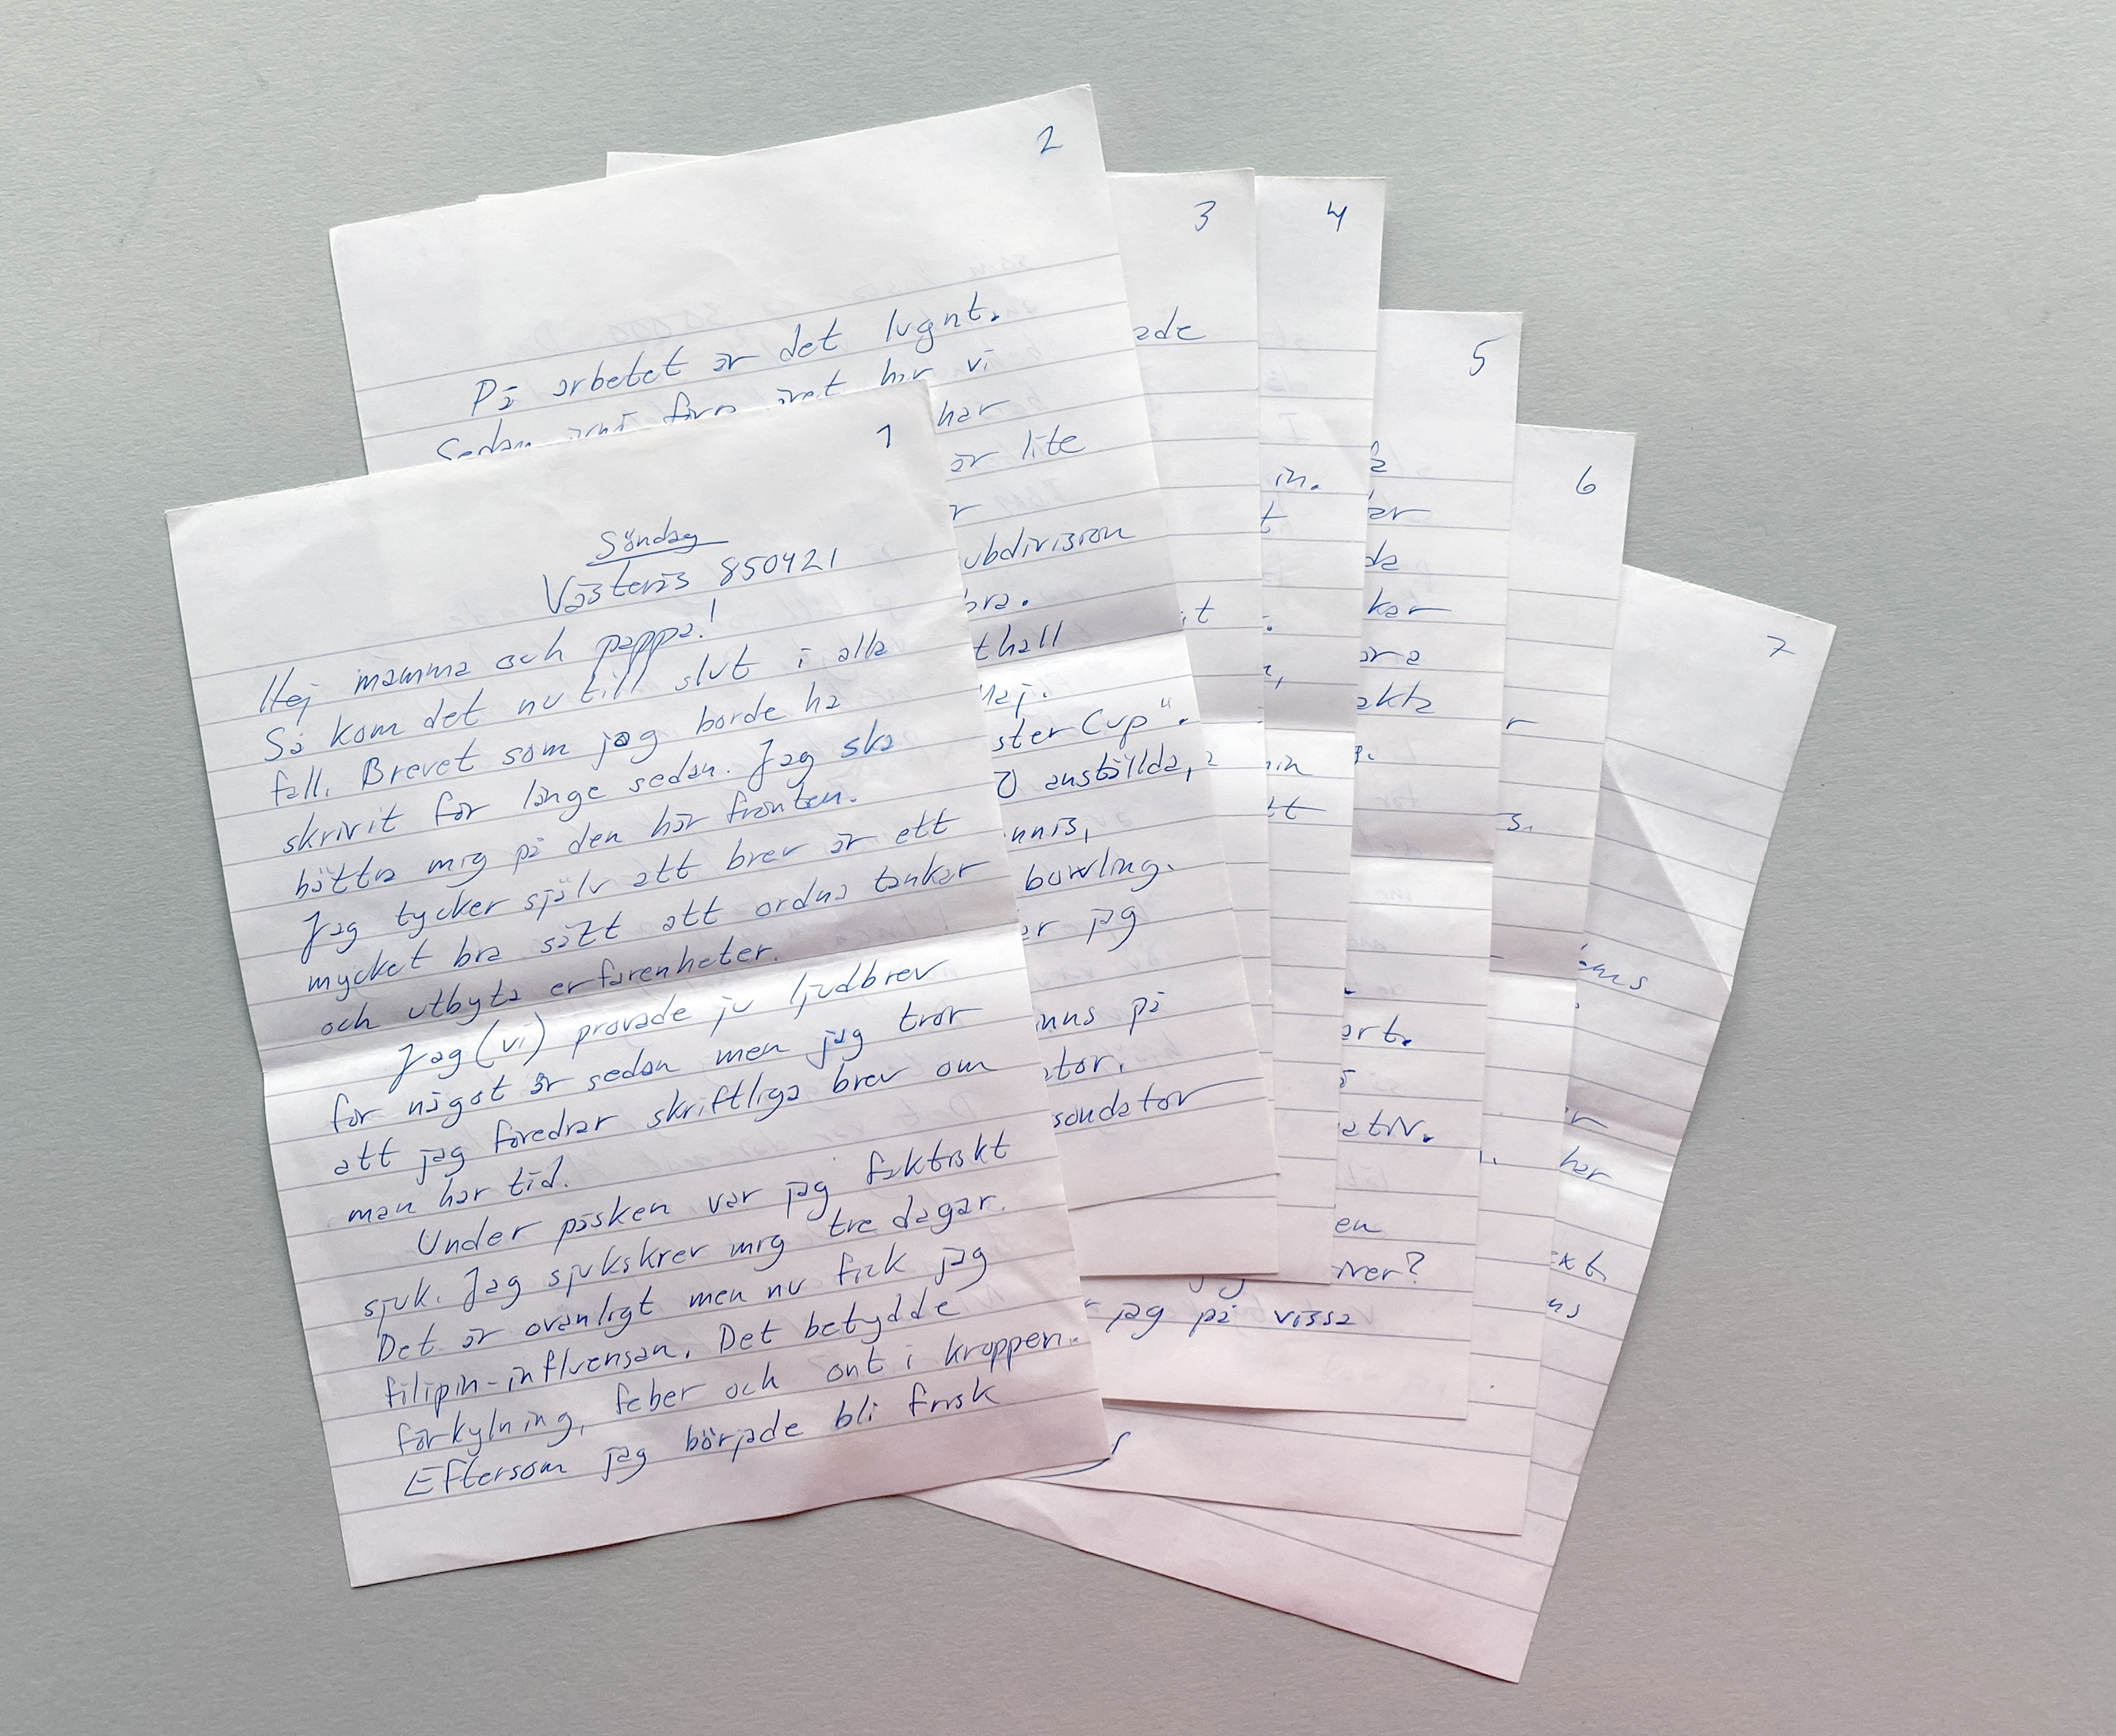 1
Söndag
Västerås 850421
Hej mamma och pappa!
Så kom det nu till slut i alla
fall. Brevet som jag borde ha
skrivit för länge sedan. Jag ska
bättra mig på den här fronten.
Jag tycker själv att brev är ett
mycket bra sätt att ordna tankar
och utbyta erfarenheter.
Jag (vi) provade ju ljudbrev
för något år sedan men jag tror
att jag föredrar skriftliga brev om
man har tid.
Under påsken var jag faktiskt
sjuk. Jag sjukskrev mig tre dagar.
Det är ovanligt men nu fick jag
filipin-influensan. Det betydde
förkylning, feber och ont i kroppen.
Eftersom jag började bli frisk
2
På arbetet är det lugnt.
Sedan förra året har vi
har
är lite
r
ubdivision
bra.
thall
Maj.
ster Cup".
0 anställda,
nnis,
bowling.
er jag
inns på
ator.
soudator
3
ade
it
jag på vissa
4
in.
t
.
,
nin
tt
5
ar
da
kar
ara
akta
ert.
ativ.
en
iver?
6
r
s.
7
ems
er
har
ext.
ns